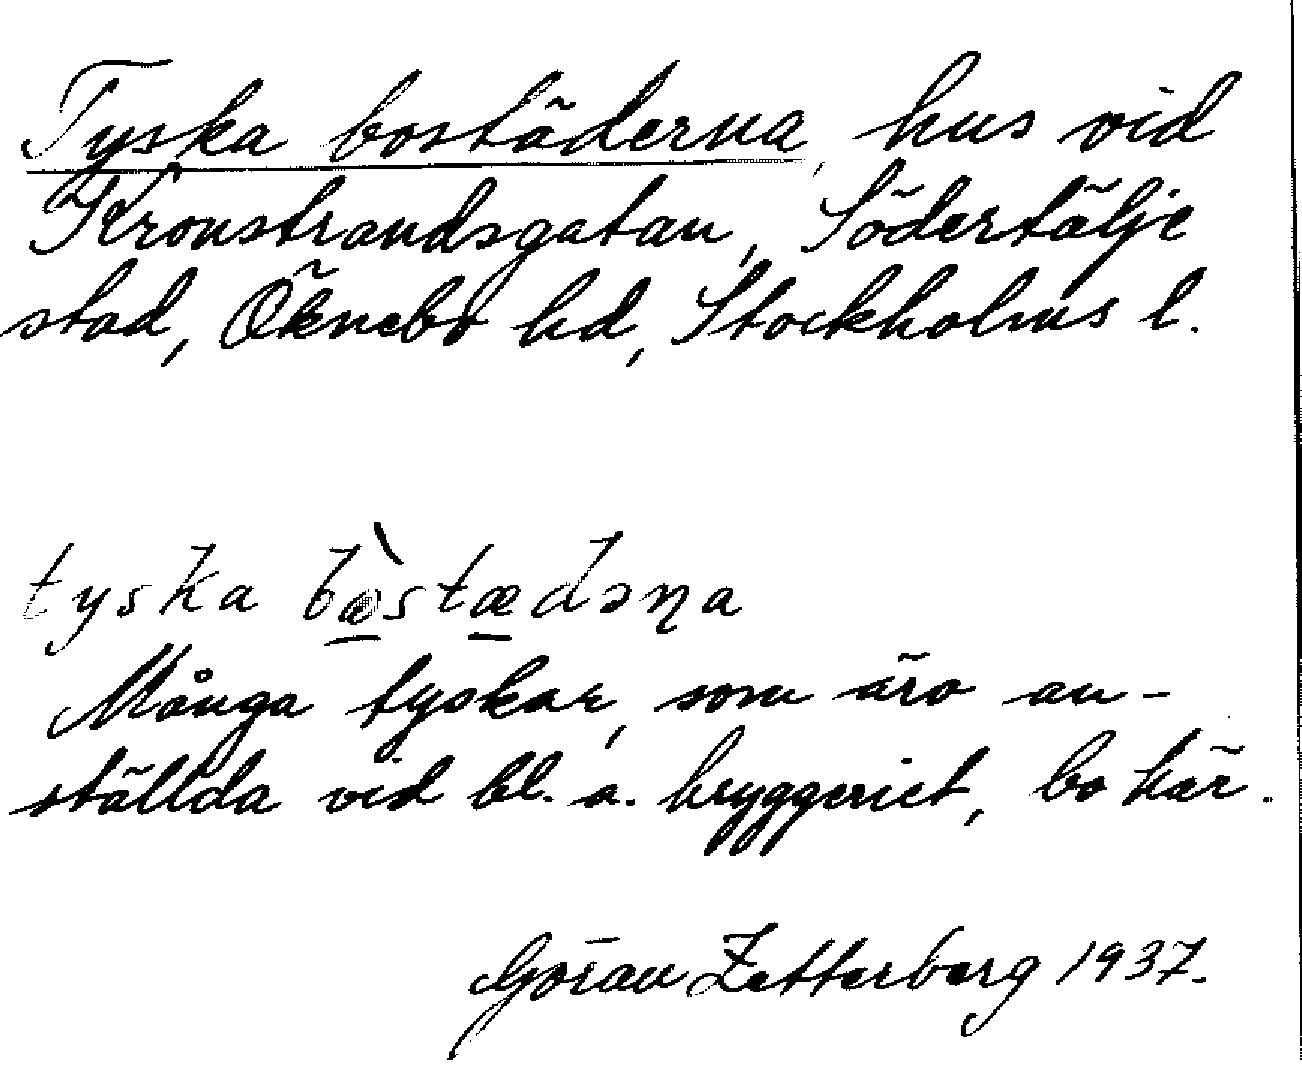 Tyska bostäderna, hus vid
Kronstrandsgatan, Södertälje
stad, Öknebo hd, Stockholms l.
tyska bòstædəɳa
Många tyskar, som äro an-
ställda vid bl. a. bryggeriet, bo här.
Göran Zetterberg 1937.